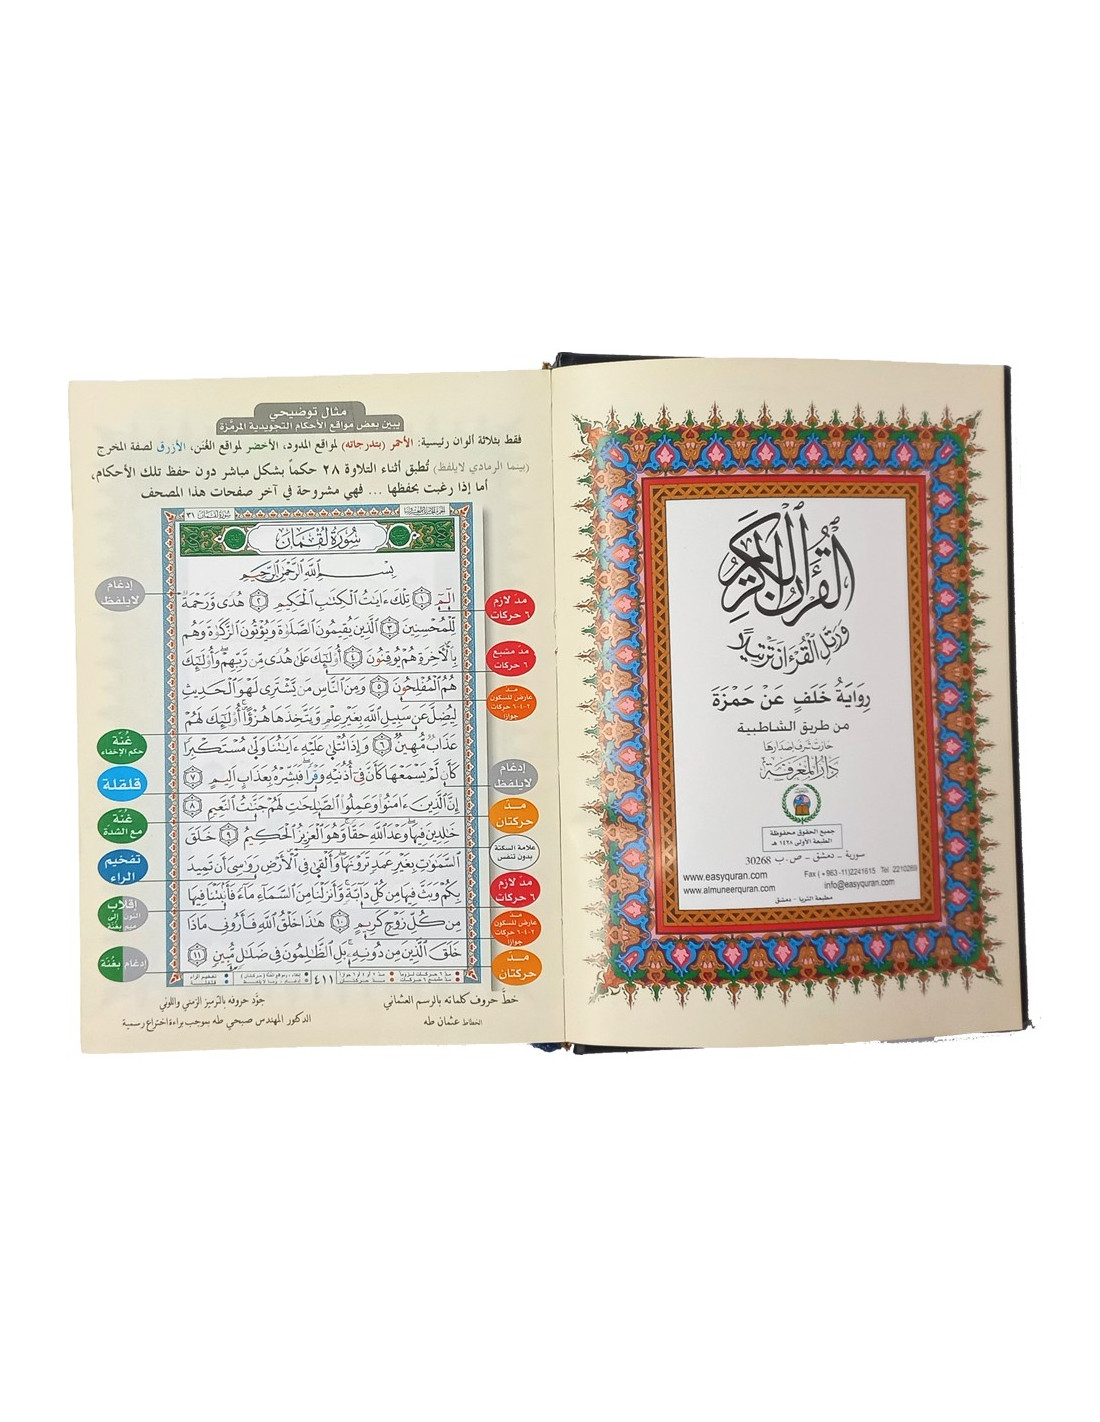 مثال توضيحي
يبين بعض مواقع الأحكام التجويدية المرمّزة
فقط بثلاثة ألوان رئيسية: الأحمر (بتدرجاته) لمواقع المدود، الأخضر لمواقع الغُنَن، الأزرق لصفة المخرج
(بينما الرمادي لايلفظ) تُطبق أثناء التلاوة ٢٨ حكماً بشكل مباشر دون حفظ تلك الأحكام،
أما إذا رغبت بحفظها ... فهي مشروحة في آخر صفحات هذا المصحف
سورة لقمان ٣١
سُورَةُ لُقْمَانَ
بِسْمِ اللَّهِ الرَّحْمَٰنِ الرَّحِيمِ
الٓمٓ ١ تِلْكَ ءَايَٰتُ الْكِتَٰبِ الْحَكِيمِ ٢ هُدًى وَرَحْمَةً
لِّلْمُحْسِنِينَ ٣ الَّذِينَ يُقِيمُونَ الصَّلَوٰةَ وَيُؤْتُونَ الزَّكَوٰةَ وَهُم
بِالْأَخِرَةِ هُمْ يُوقِنُونَ ٤ أُوْلَٰٓئِكَ عَلَىٰ هُدًى مِّن رَّبِّهِمْ وَأُوْلَٰٓئِكَ
هُمُ الْمُفْلِحُونَ ٥ وَمِنَ النَّاسِ مَن يَشْتَرِى لَهْوَ الْحَدِيثِ
لِيُضِلَّ عَن سَبِيلِ اللَّهِ بِغَيْرِ عِلْمٍ وَيَتَّخِذَهَا هُزُؤًا أُوْلَٰٓئِكَ لَهُمْ
عَذَابٌ مُّهِينٌ ٦ وَإِذَا تُتْلَىٰ عَلَيْهِ ءَايَٰتُنَا وَلَّىٰ مُسْتَكْبِرًا
كَأَن لَّمْ يَسْمَعْهَا كَأَنَّ فِىٓ أُذُنَيْهِ وَقْرًا فَبَشِّرْهُ بِعَذَابٍ أَلِيمٍ ٧
إِنَّ الَّذِينَ ءَامَنُوا وَعَمِلُوا الصَّٰلِحَٰتِ لَهُمْ جَنَّٰتُ النَّعِيمِ ٨
خَٰلِدِينَ فِيهَا وَعْدَ اللَّهِ حَقًّا وَهُوَ الْعَزِيزُ الْحَكِيمُ ٩ خَلَقَ
السَّمَٰوَٰتِ بِغَيْرِ عَمَدٍ تَرَوْنَهَا وَأَلْقَىٰ فِى الْأَرْضِ رَوَٰسِىَ أَن تَمِيدَ
بِكُمْ وَبَثَّ فِيهَا مِن كُلِّ دَآبَّةٍ وَأَنزَلْنَا مِنَ السَّمَآءِ مَآءً فَأَنۢبَتْنَا فِيهَا
مِن كُلِّ زَوْجٍ كَرِيمٍ ١٠ هَٰذَا خَلْقُ اللَّهِ فَأَرُونِى مَاذَا
خَلَقَ الَّذِينَ مِن دُونِهِ بَلِ الظَّٰلِمُونَ فِى ضَلَٰلٍ مُّبِينٍ ١١
٤١١
إدغام
لايلفظ
غُنّة
حكم الإخفاء
قلقلة
غُنّة
مع الشدّة
تفخيم
الراء
إقلاب
النون إلى
ميم بغُنّة
إدغام بغُنّة
مدّ لازم
٦ حركات
مدّ مشبع
٦ حركات
مدّ
عارض للسكون
٢-٤-٦ حركات
جوازا
إدغام
لايلفظ
مدّ
حركتان
علامة السكتة
بدون تنفس
مدّ لازم
٦ حركات
مدّ
عارض للسكون
٢-٤-٦ حركات
جوازا
مدّ
حركتان
خطَّ حروف كلماته بالرسم العثماني
الخطاط عثمان طه
جوَّد حروفه بالترميز الزمني واللوني
الدكتور المهندس صبحي طه بموجب براءة اختراع رسمية
القُرآنُ الكَرِيمُ
وَرَتِّلِ الْقُرْءَانَ تَرْتِيلًا
رِوَايَةُ خَلَفٍ عَنْ حَمْزَةَ
من طريق الشاطبية
حازت شرف إصدارها
دَارُ الْمَعْرِفَةِ
جميع الحقوق محفوظة
الطبعة الأولى ١٤٢٨ هـ
سورية - دمشق - ص.ب 30268
Fax (+963-11)2241615 Tel 2210269
www.easyquran.com
info@easyquran.com
www.almuneerquran.com
مطبعة الثريا - دمشق